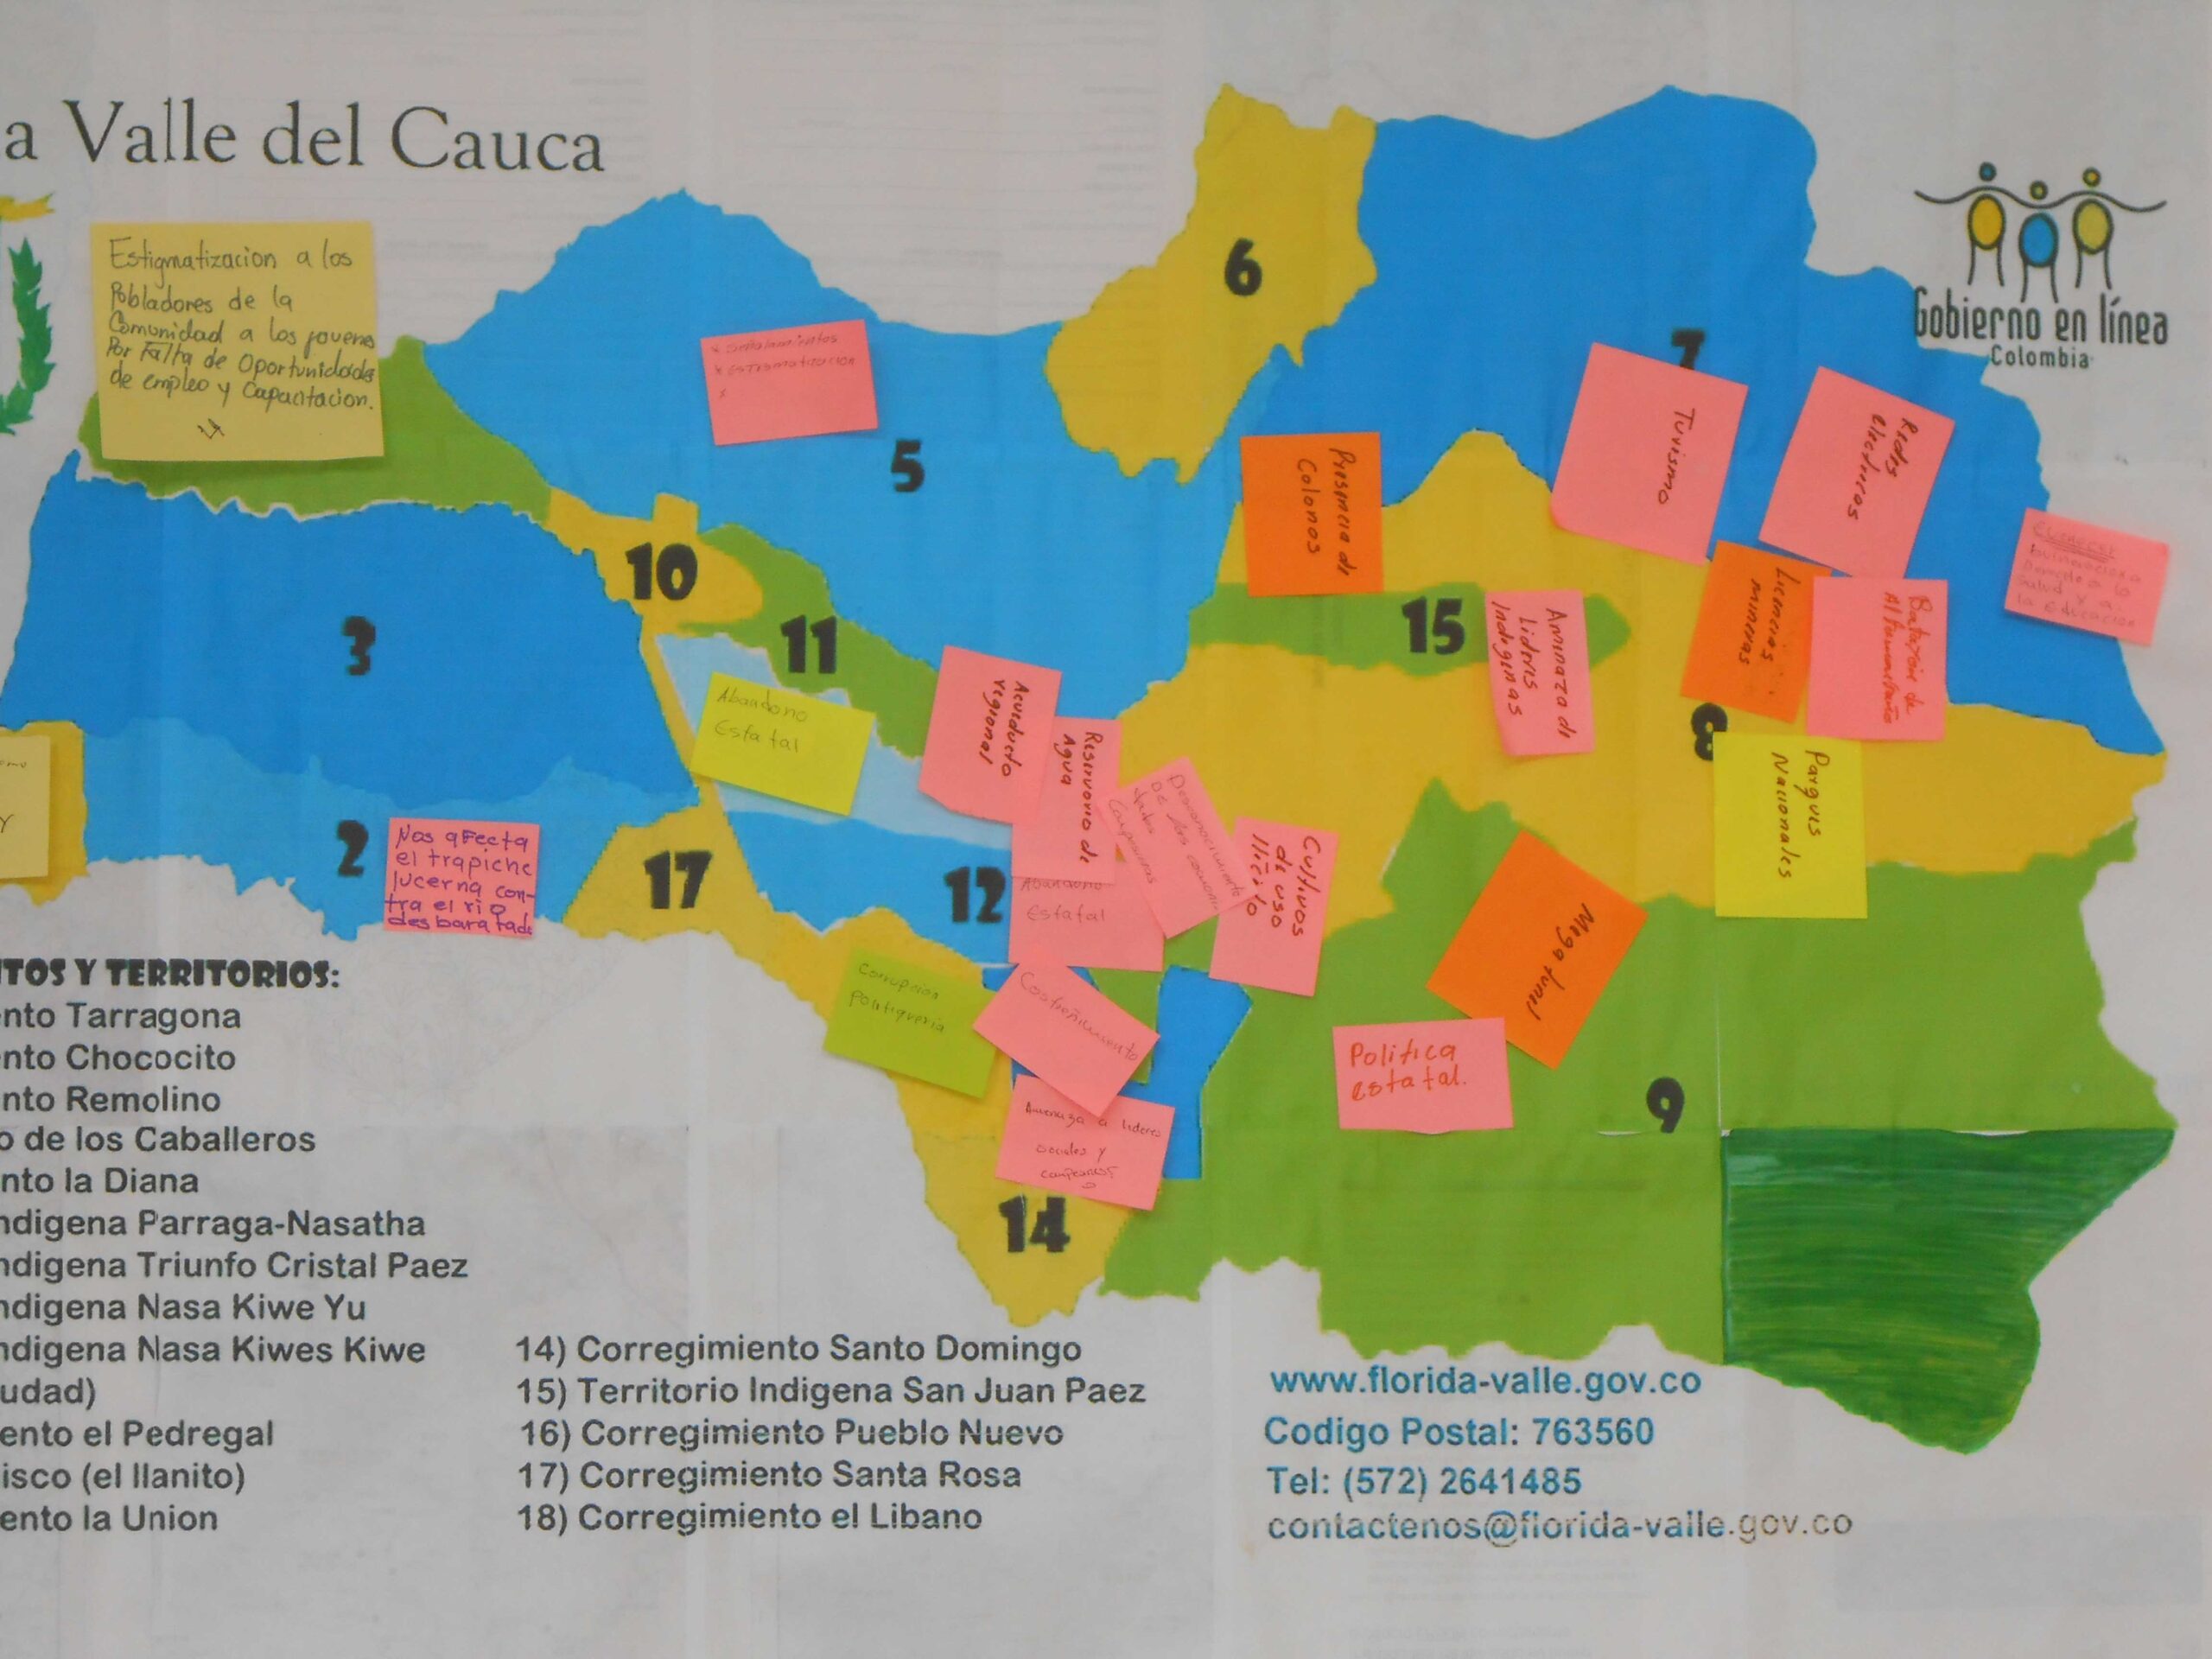 a Valle del Cauca
Estigmatizacion a los
Pobladores de la
Comunidad a los jovenes
Por Falta de Oportunidades
de empleo y Capacitacion.
* Señalamientos
* ESTIGMATIZACION
*
6
7
5
Gobierno en línea
Colombia
Turismo
Redes
electricas
Presencia de
Colonos
10
3
11
15
Aminaza di
Lideris
Indigenas
Licencias
mineras
Batallon de
Alta montaña
Derecho a la
Salud y a
la educacion
Abandono
Estatal
Acueducto
regional
Reservorio de
Agua
8
Parques
Nacionales
2
Nos afecta
el trapiche
lucerna con-
tra el rio
desbaratado
17
12
Abandono
Estatal
Desconocimiento
De las
Campesinas
Cultivos
de uso
Ilicito
Mega tunel
Corrupcion
Politiqueria
Costreñimiento
Politica
estatal.
9
Amenaza a lideres
sociales y
campesinos
14
TOS Y TERRITORIOS:
nto Tarragona
nto Chococito
nto Remolino
o de los Caballeros
nto la Diana
ndigena Parraga-Nasatha
ndigena Triunfo Cristal Paez
ndigena Nasa Kiwe Yu
ndigena Nasa Kiwes Kiwe
udad)
ento el Pedregal
isco (el llanito)
ento la Union
14) Corregimiento Santo Domingo
15) Territorio Indigena San Juan Paez
16) Corregimiento Pueblo Nuevo
17) Corregimiento Santa Rosa
18) Corregimiento el Libano
www.florida-valle.gov.co
Codigo Postal: 763560
Tel: (572) 2641485
contactenos@florida-valle.gov.co